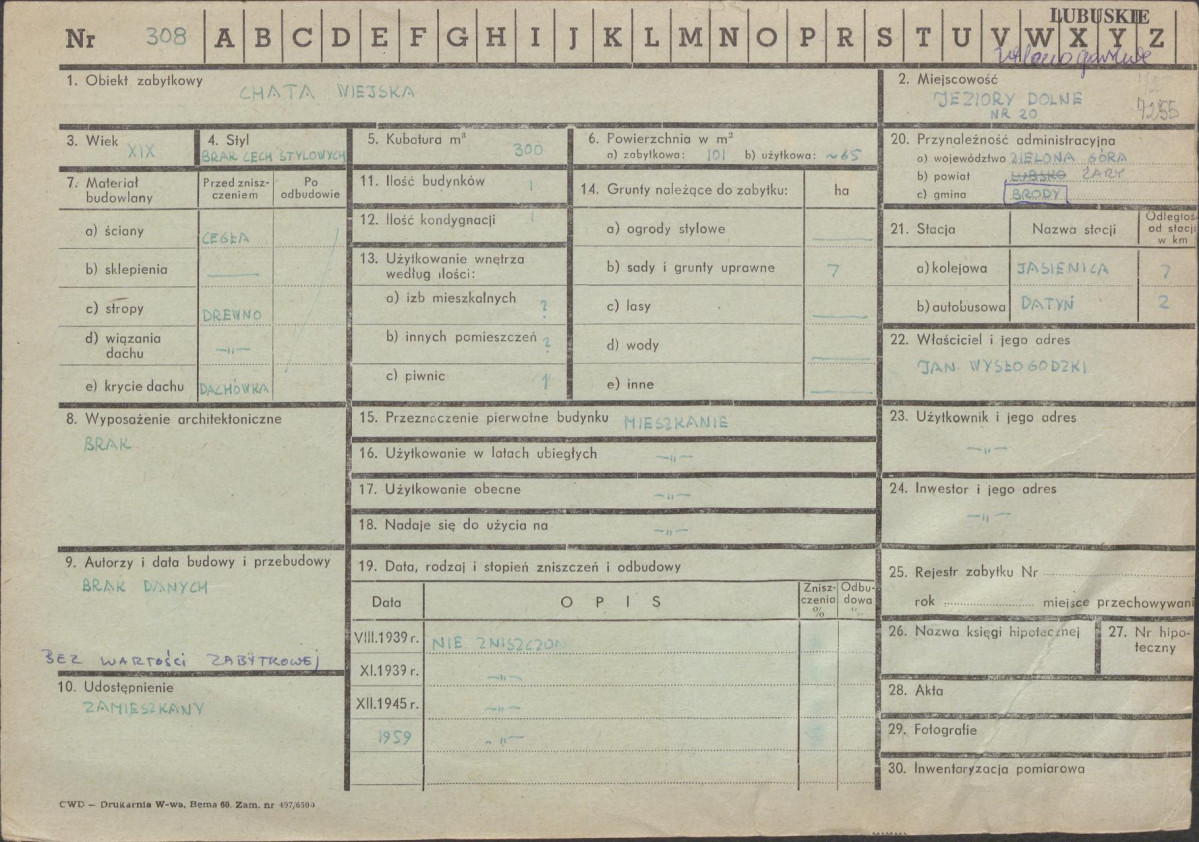 LUBUSKIE
Nr 308 A B C D E F G H I J K L M N O P R S T U V W X Y Z
1. Obiekt zabytkowy
CHATA WIEJSKA
2. Miejscowość
JEZIORY DOLNE
NR 20
7255
3. Wiek
XIX
4. Styl
BRAK CECH STYLOWYCH
5. Kubatura m³
300
6. Powierzchnia w m²
a) zabytkowa: 101 b) użytkowa: ~65
20. Przynależność administracyjna
a) województwo ZIELONA GÓRA
b) powiat LUBSKO ŻARY
c) gmina BRODY
7. Materiał budowlany
Przed zniszczeniem
Po odbudowie
a) ściany CEGŁA
b) sklepienia —
c) stropy DREWNO
d) wiązania dachu —„—
e) krycie dachu DACHÓWKA
11. Ilość budynków 1
12. Ilość kondygnacji 1
13. Użytkowanie wnętrza według ilości:
a) izb mieszkalnych ?
b) innych pomieszczeń ?
c) piwnic 1
14. Grunty należące do zabytku: ha
a) ogrody stylowe —
b) sady i grunty uprawne 7
c) lasy —
d) wody —
e) inne —
21. Stacja Nazwa stacji Odległoś od stacji w km
a) kolejowa JASIENICA 7
b) autobusowa DATYŃ 2
22. Właściciel i jego adres
JAN WYSŁOGODZKI
8. Wyposażenie architektoniczne
BRAK
15. Przeznaczenie pierwotne budynku MIESZKANIE
16. Użytkowanie w latach ubiegłych —„—
17. Użytkowanie obecne —„—
18. Nadaje się do użycia na —„—
23. Użytkownik i jego adres
—„—
24. Inwestor i jego adres
—„—
9. Autorzy i data budowy i przebudowy
BRAK DANYCH
BEZ WARTOŚCI ZABYTKOWEJ
10. Udostępnienie
ZAMIESZKANY
19. Data, rodzaj i stopień zniszczeń i odbudowy
Data OPIS Zniszczenia % Odbudowa %
VIII.1939 r. NIE ZNISZCZON
XI.1939 r. —„—
XII.1945 r. —„—
1959 —„—
25. Rejestr zabytku Nr
rok miejsce przechowywani
26. Nazwa księgi hipotecznej
27. Nr hipoteczny
28. Akta
29. Fotografie
30. Inwentaryzacja pomiarowa
CWD — Drukarnia W-wa, Bema 60. Zam. nr 497/6500